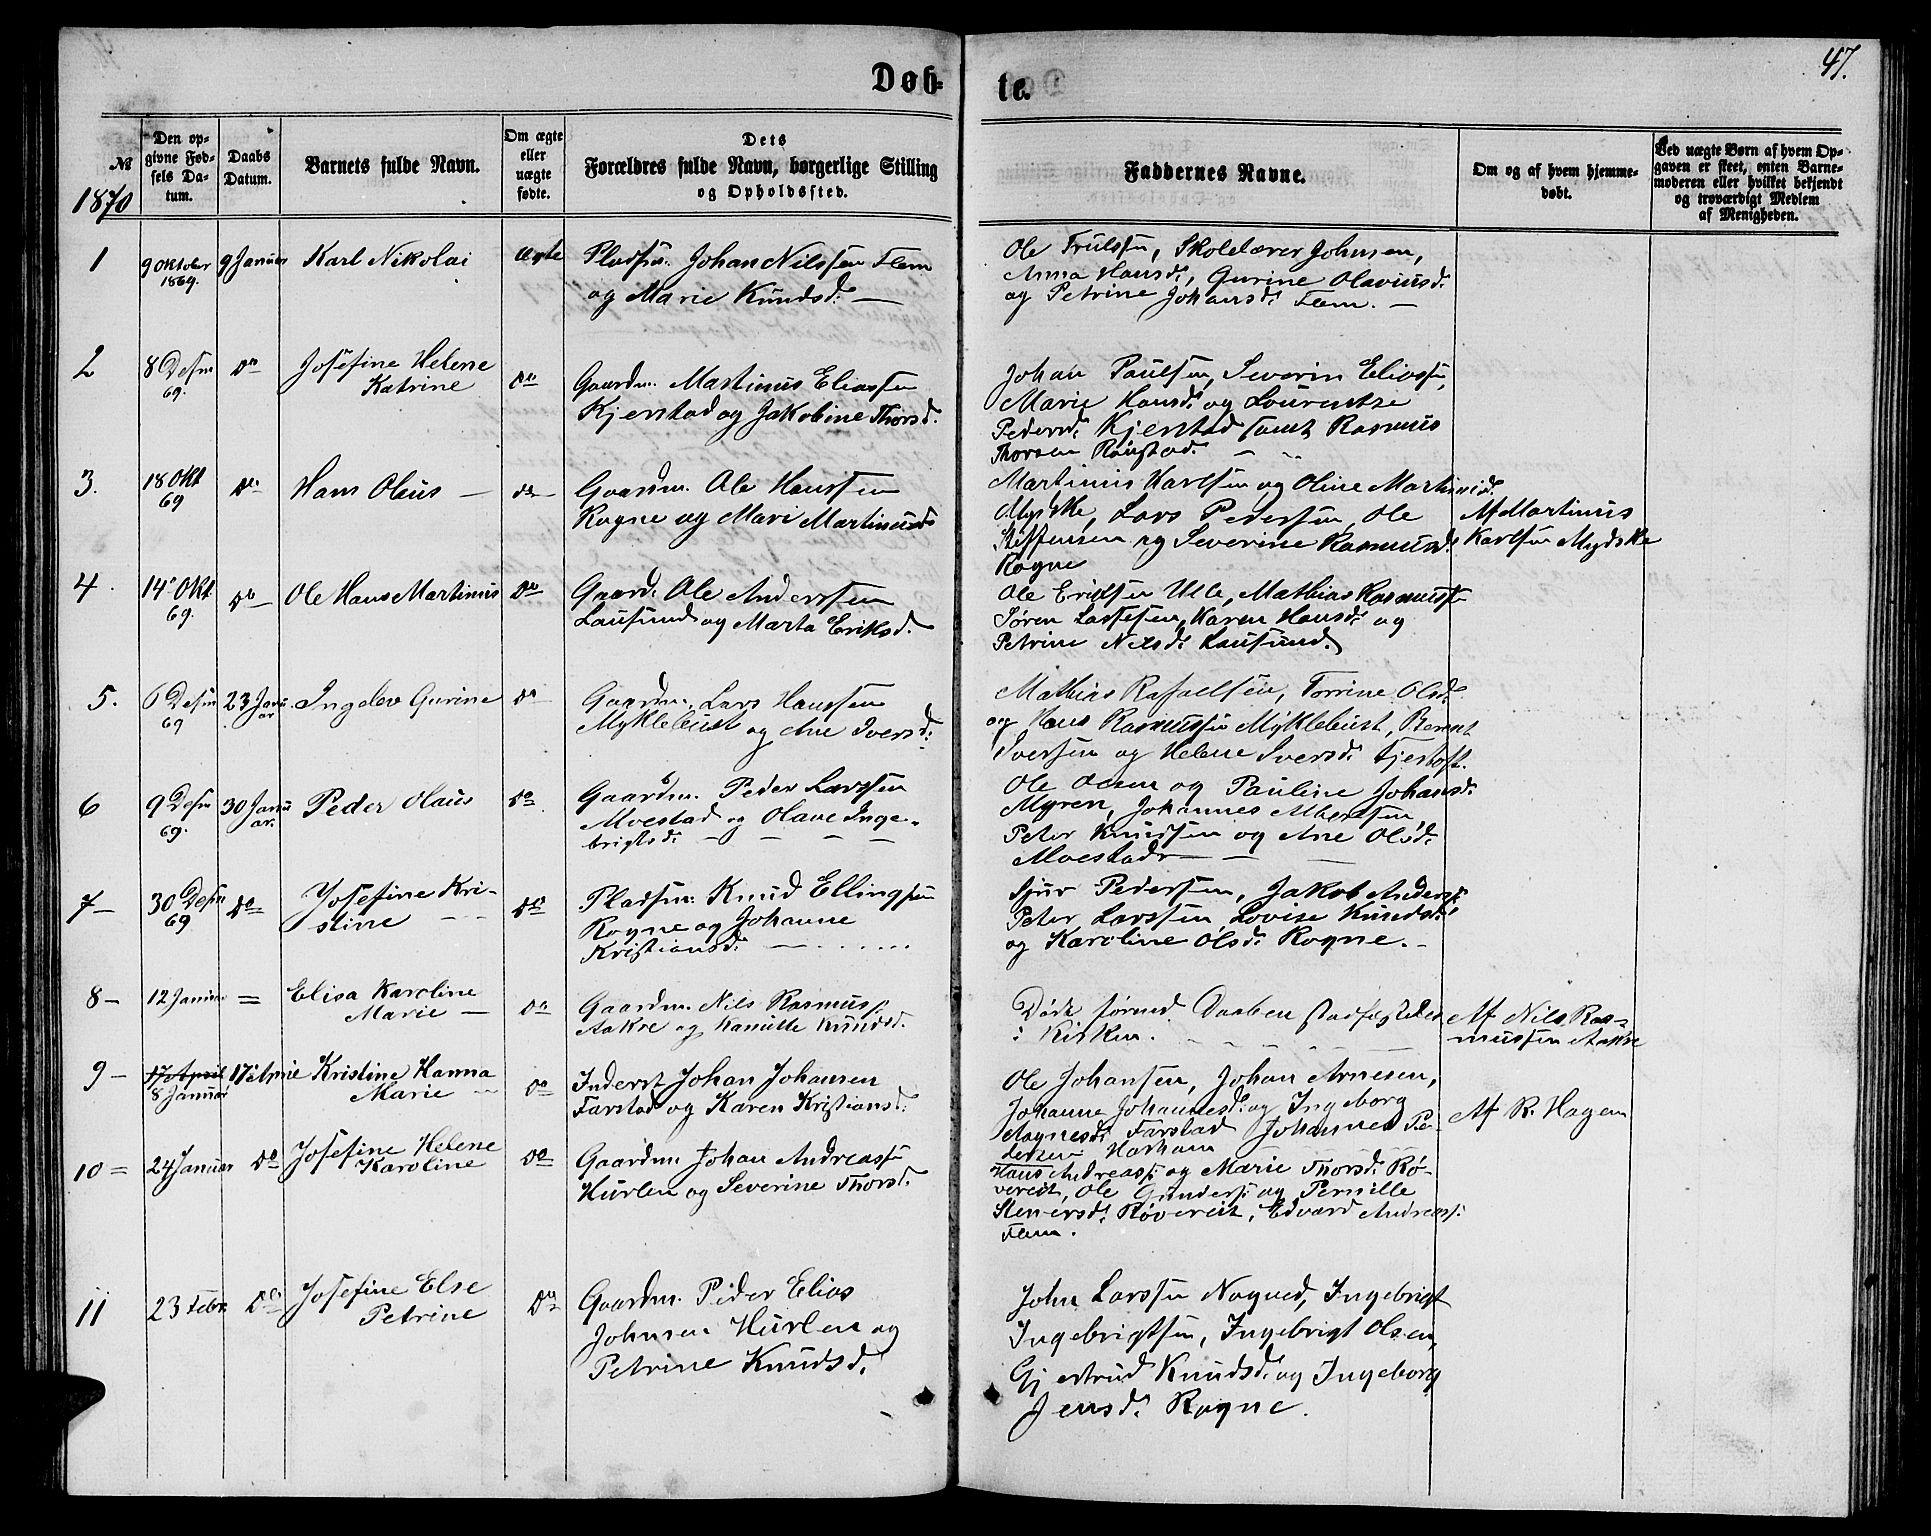 47.
Døb-
te.
№
Den op-
givne Fød-
sels Da-
tum.
Daabs
Datum.
Barnets fulde Navn.
Om ægte
eller
uægte
fødte.
Dets
Forældres fulde Navn, borgerlige Stilling
og Opholdssted.
Faddernes Navne.
Om og af hvem hjemme-
døbt.
Ved uægte Børn af hvem Op-
gaven er skeet, enten Barne-
moderen eller hvilket bekjendt
og troværdigt Medlem
af Menigheden.
1870
1
9 Oktober
1869.
9 Januar
Karl Nikolai
Ægte
Pladsm. Johan Nilssen Flem
og Marie Knudsd. —
Ole Trulssen, Skolelærer Johnsen,
Anna Hansd., Gurine Olaviusd.
og Petrine Johansd. Flem. —
2
8 Desm
69.
Do
Josefine Helene
Katrine
Do
Gaardm. Martinus Eliassen
Kjerstad og Jakobine Thorsd.
Johan Paulsen, Severin Eliass.,
Marie Hansd. og Lourentze
Pedersd. Kjerstad samt Rasmus
Thorsen Rønstad.
3.
18 Okt
69
Do
Hans Olaus —
Do
Gaardm. Ole Hanssen
Rogne og Mari Martinusd.
Martinus Karlsen og Oline Martinusd.
Mydske, Lars Pedersen, Ole
Steffensen og Severine Rasmusd.
Rogne
Af Martinus
Karlsen Mydske
4.
14 Okt
69.
Do
Ole Hans Martinus
Do
Gaardm. Ole Anderssen
Lausund og Marta Eriksd.
Ole Eriksen Ulle, Mathias Rasmuss.
Søren Lassesen, Karen Hansd. og
Petrine Nelsd. Lausund.
5.
6 Desm
69
23 Janu
ar.
Ingelev Gurine
Do
Gaardm. Lars Hanssen
Myklebust og Ane Iversd.
Mathias Rafaelsen, Torrine Olsd.
og Hans Rasmussen Myklebust, Bernt
Iversen og Helene Iversd. Fjertoft.
6
9 Desm
69.
30 Janu
ar.
Peder Olaus
Do.
Gaardm. Peder Larssen
Moestad og Olave Inge-
brigtsd. — — — —
Ole Olsen og Pauline Johansd.
Myren, Johannes Albertsen,
Peter Knudsen og Ane Olsd.
Moestad — — —
7—
30 Desm
69
Do
Josefine Kri-
stine — —
Do
Pladsm. Knud Ellingsen
Rogne og Johanne
Kristiansd. —
Sjur Pedersen, Jakob Anderss.
Peter Larssen Lovise Knudsd.
og Karoline Olsd. Rogne. —
8 —
12 Januar
=
Elisa Karoline
Marie —
Do
Gaardm. Nils Rasmuss.
Aakre og Kanutte Knudsd.
Døde førend Daaben stadfæstedes
i Kirken.
Af Nils Ras-
mussen Aakre
9 —
17 April
8 Januar
17 April
Kristine Hanna
Marie —
Do
Inderst Johan Johansen
Farstad og Karen Kristiansd.
Ole Johansen, Johan Arnesen,
Johanne Johannesd. og Ingeborg
Aagnesd. Farstad Johannes Pe-
dersen Harham
Af R. Hagen
10 =
24 Januar
Do
Josefine Helene
Karoline
Do
Gaardm. Johan Andreass.
Hurlen og Severine Thorsd.
Hans Andreass. og Marie Thorsd. Rø-
vereit, Ole Gunders. og Pernille
Stenersd. Røvereit, Edvard Andreass.
Flem.
11
23 Febr.
Do
Josefine Else
Petrine
Do
Gaardm. Peder Elias
Johnsen Hurlen og
Petrine Knudsd.
John Larssen Nogved, Ingebrigt
Ingebrigtsen, Ingebrigt Olsen,
Gjertrud Knudsd. og Ingeborg
Jensd. Rogne.